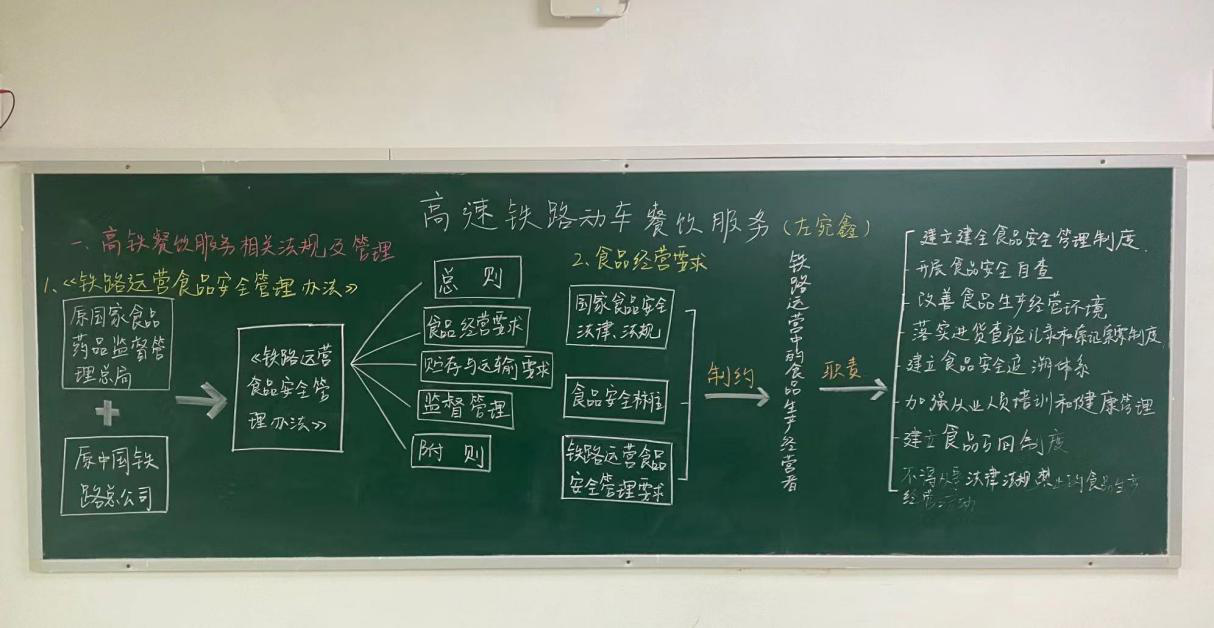 高速铁路动车餐饮服务(左宛鑫)
一、高铁餐饮服务相关法规及管理
1、《铁路运营食品安全管理办法》
原国家食品
药品监督管
理总局
+
原中国铁
路总公司
《铁路运营
食品安全管
理办法》
总则
食品经营要求
贮存与运输要求
监督管理
附则
2、食品经营要求
国家食品安全
法律、法规
食品安全标准
铁路运营食品
安全管理要求
制约
铁路运营中的食品生产经营者
职责
建立健全食品安全管理制度
开展食品安全自查
改善食品生产经营环境
落实进货查验记录和索证索票制度
建立食品安全追溯体系
加强从业人员培训和健康管理
建立食品召回制度
不得从事法律法规禁止的食品生产
经营活动